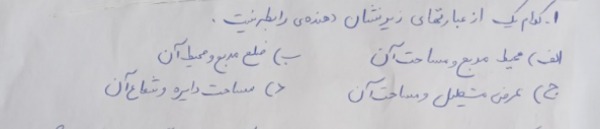 ۱. کدام یک از عبارتهای زیر نشان دهنده‌ی رابطه نیست.
الف) محیط مربع و مساحت آن ب) ضلع مربع و محیط آن
ج) عرض مستطیل و مساحت آن د) مساحت دایره و شعاع آن